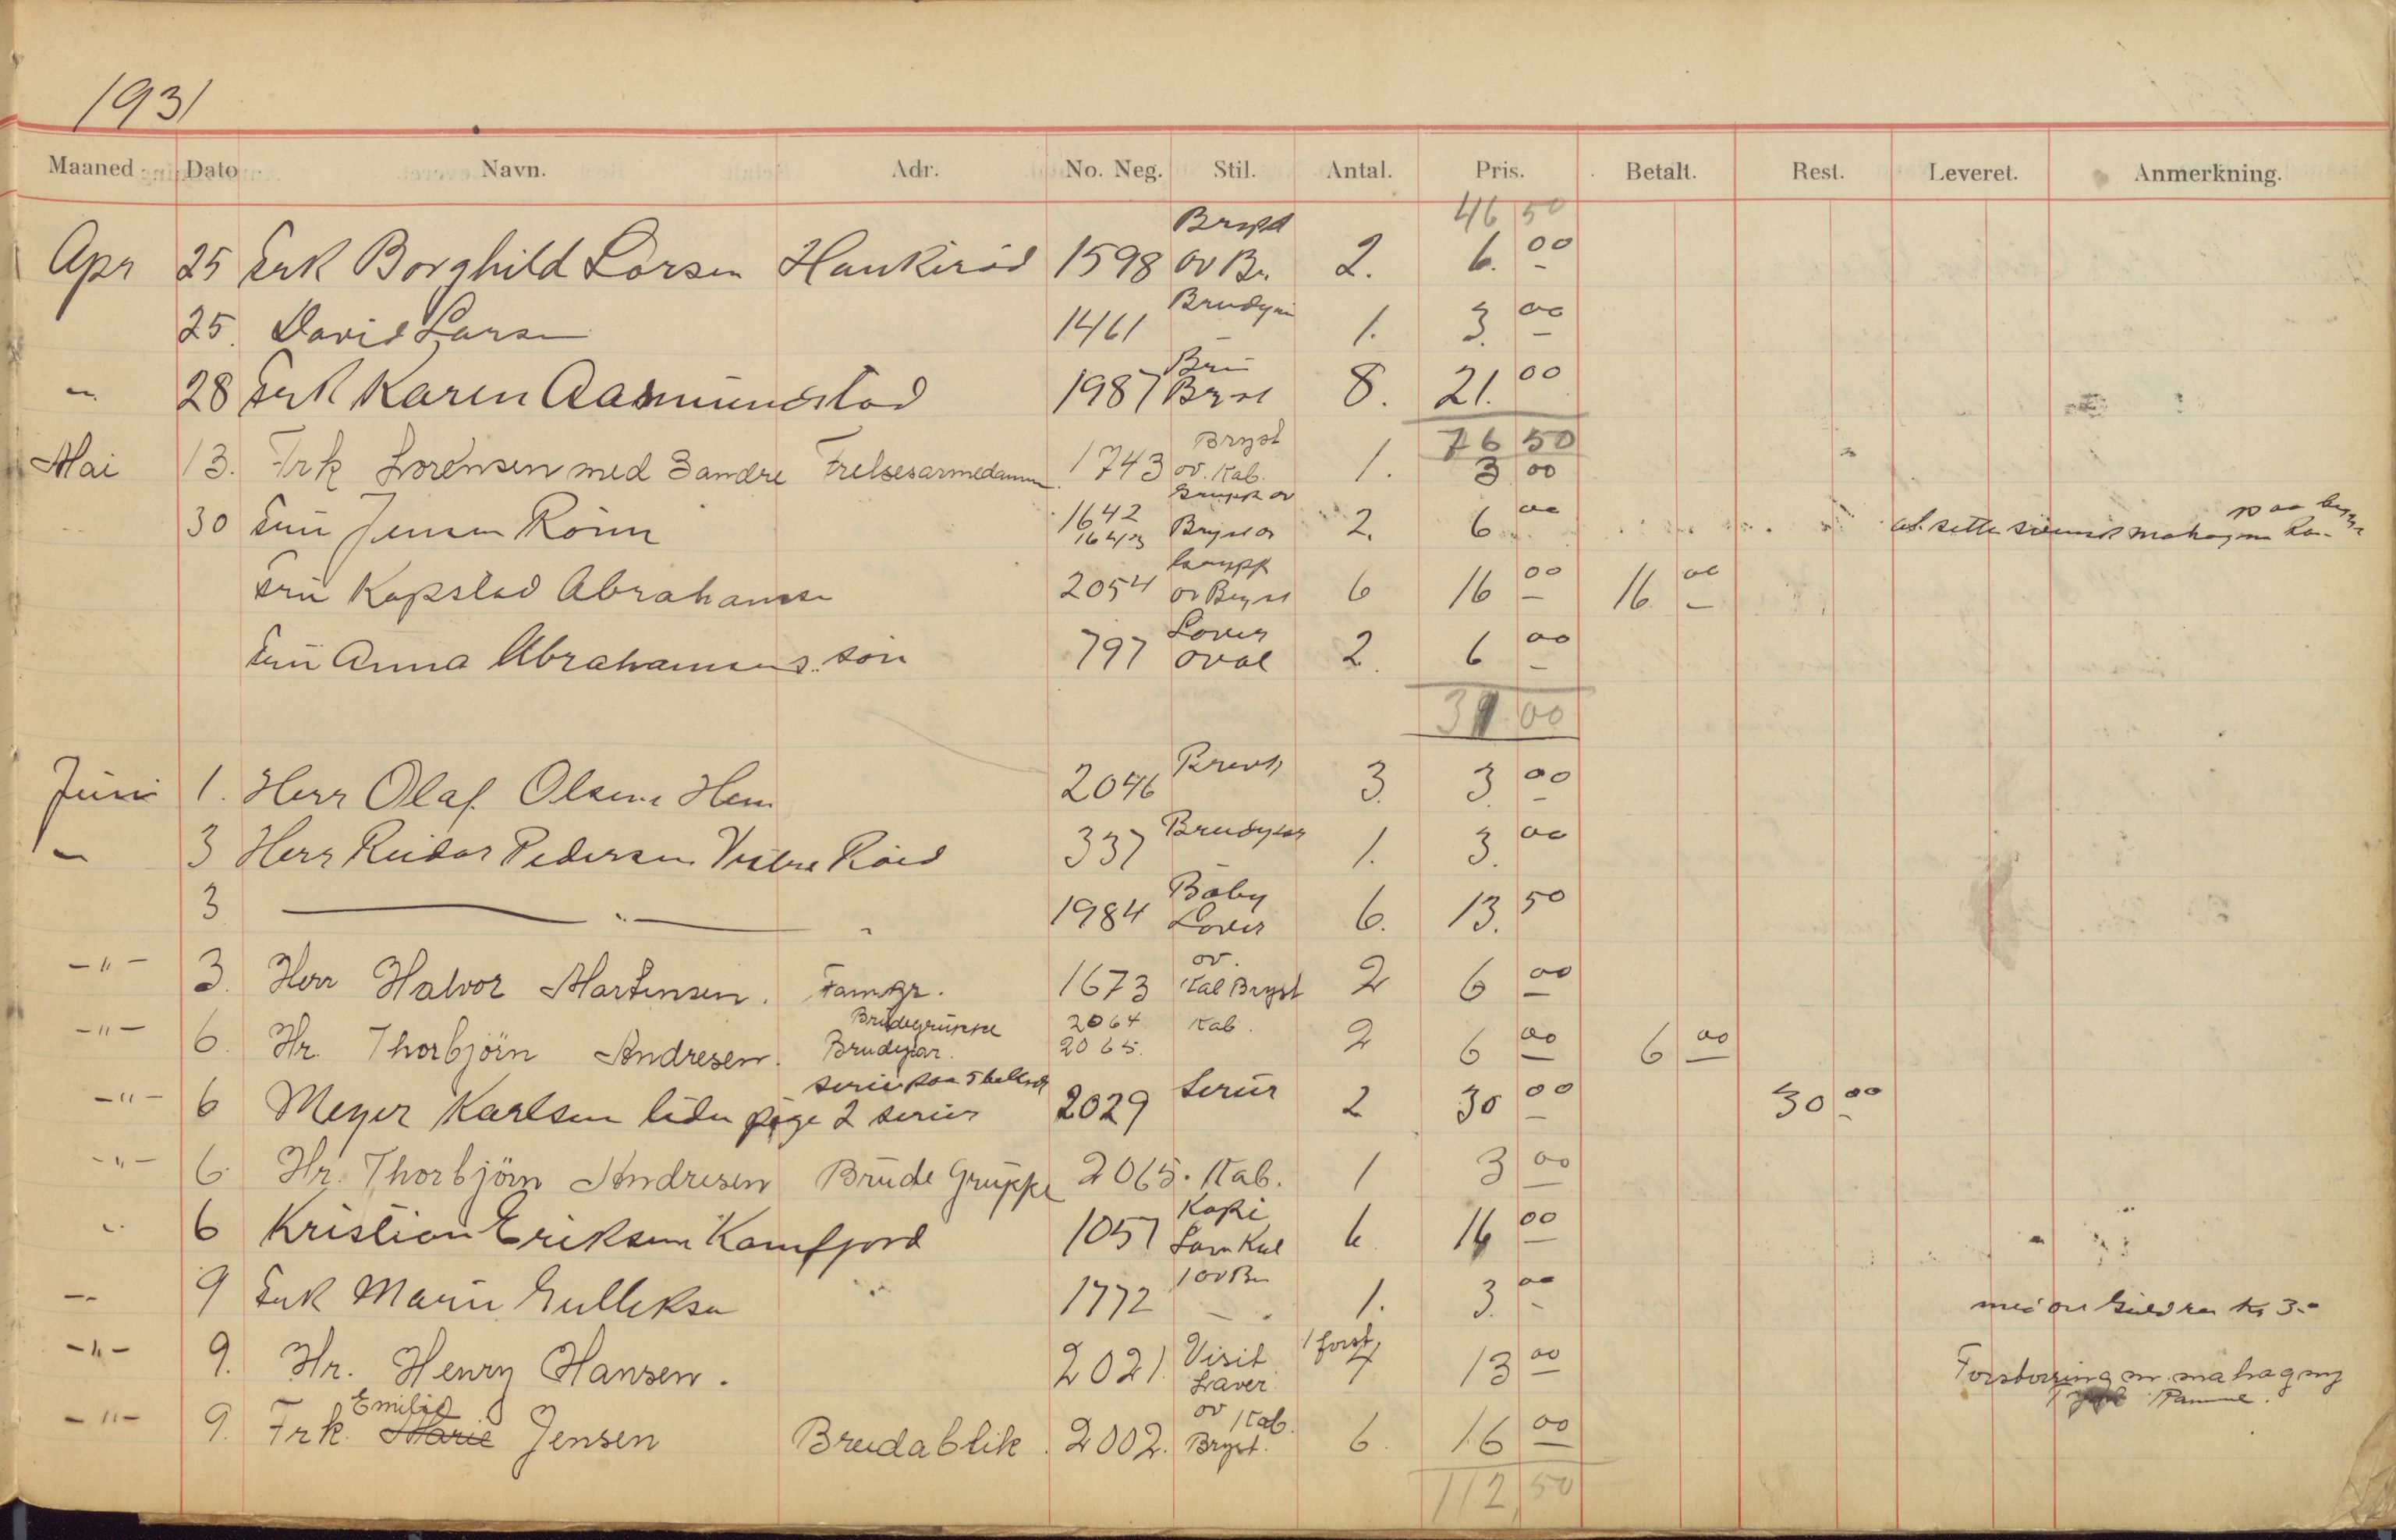 1931
Maaned Dato Navn. Adr. No. Neg. Stil. Antal. Pris. Betalt. Rest. Leveret. Anmerkning.
46 50
Apr 25 Frk Borghild Larsen Haukeröd 1598 Bryst ov Br. 2. 6. 00
25. David Larsen 1461 1. 3. 00
28 Frk Karen Aasmundstad 1987 Bryst 8. 21. 00
76 50
Mai 13. Frk Lorensen med 3 andre 1743 Bryst ov. Kab. 1. 3 00
30 Fru Jensen Rönn 1642 1643 Grupp ov Bryst ov 2. 6 00
Fru Kapstad Abrahamsen 2054 ov Bryst 6 16 00 16 00
Fru Anna Abrahamsens sön 797 Laver oval 2. 6 00
31 00
Juni 1. Herr Olaf Olsen Hem 2046 3. 3. 00
3 Herr Reidar Pedersen Vestre Röed 337 Brudepar 1. 3. 00
3 — " — 1984 Baby Laver 6. 13. 50
— " — 3. Herr Halvor Martinsen. Fam.gr. 1673 ov. Kab Bryst 2 6 00
— " — 6. Hr. Thorbjörn Andresen. Brudegruppe Brudepar. 2064 2065. Kab. 2 6 00 6 00
— " — 6 Meyer Karlsen liden pige 2 serier 2029 Serier 2 30 00 30 00
— " — 6. Hr. Thorbjörn Andresen Brude Gruppe 2065. Kab. 1 3 00
" 6 Kristian Eriksen Kamfjord 1057 Kopi 6 16 00
9 Frk Marie Gulliksen 1772 1 ov Br 1. 3. 00 kr 3.-
— " — 9. Hr. Henry Hansen. 2021. Visit Laver 1 forst, 4 13 00 Forstörring m. mahagny Ramme.
— " — 9. Frk. Marie Emilie Jensen Breidablik. 2002. ov Kab. Bryst. 6. 16 00
112,50